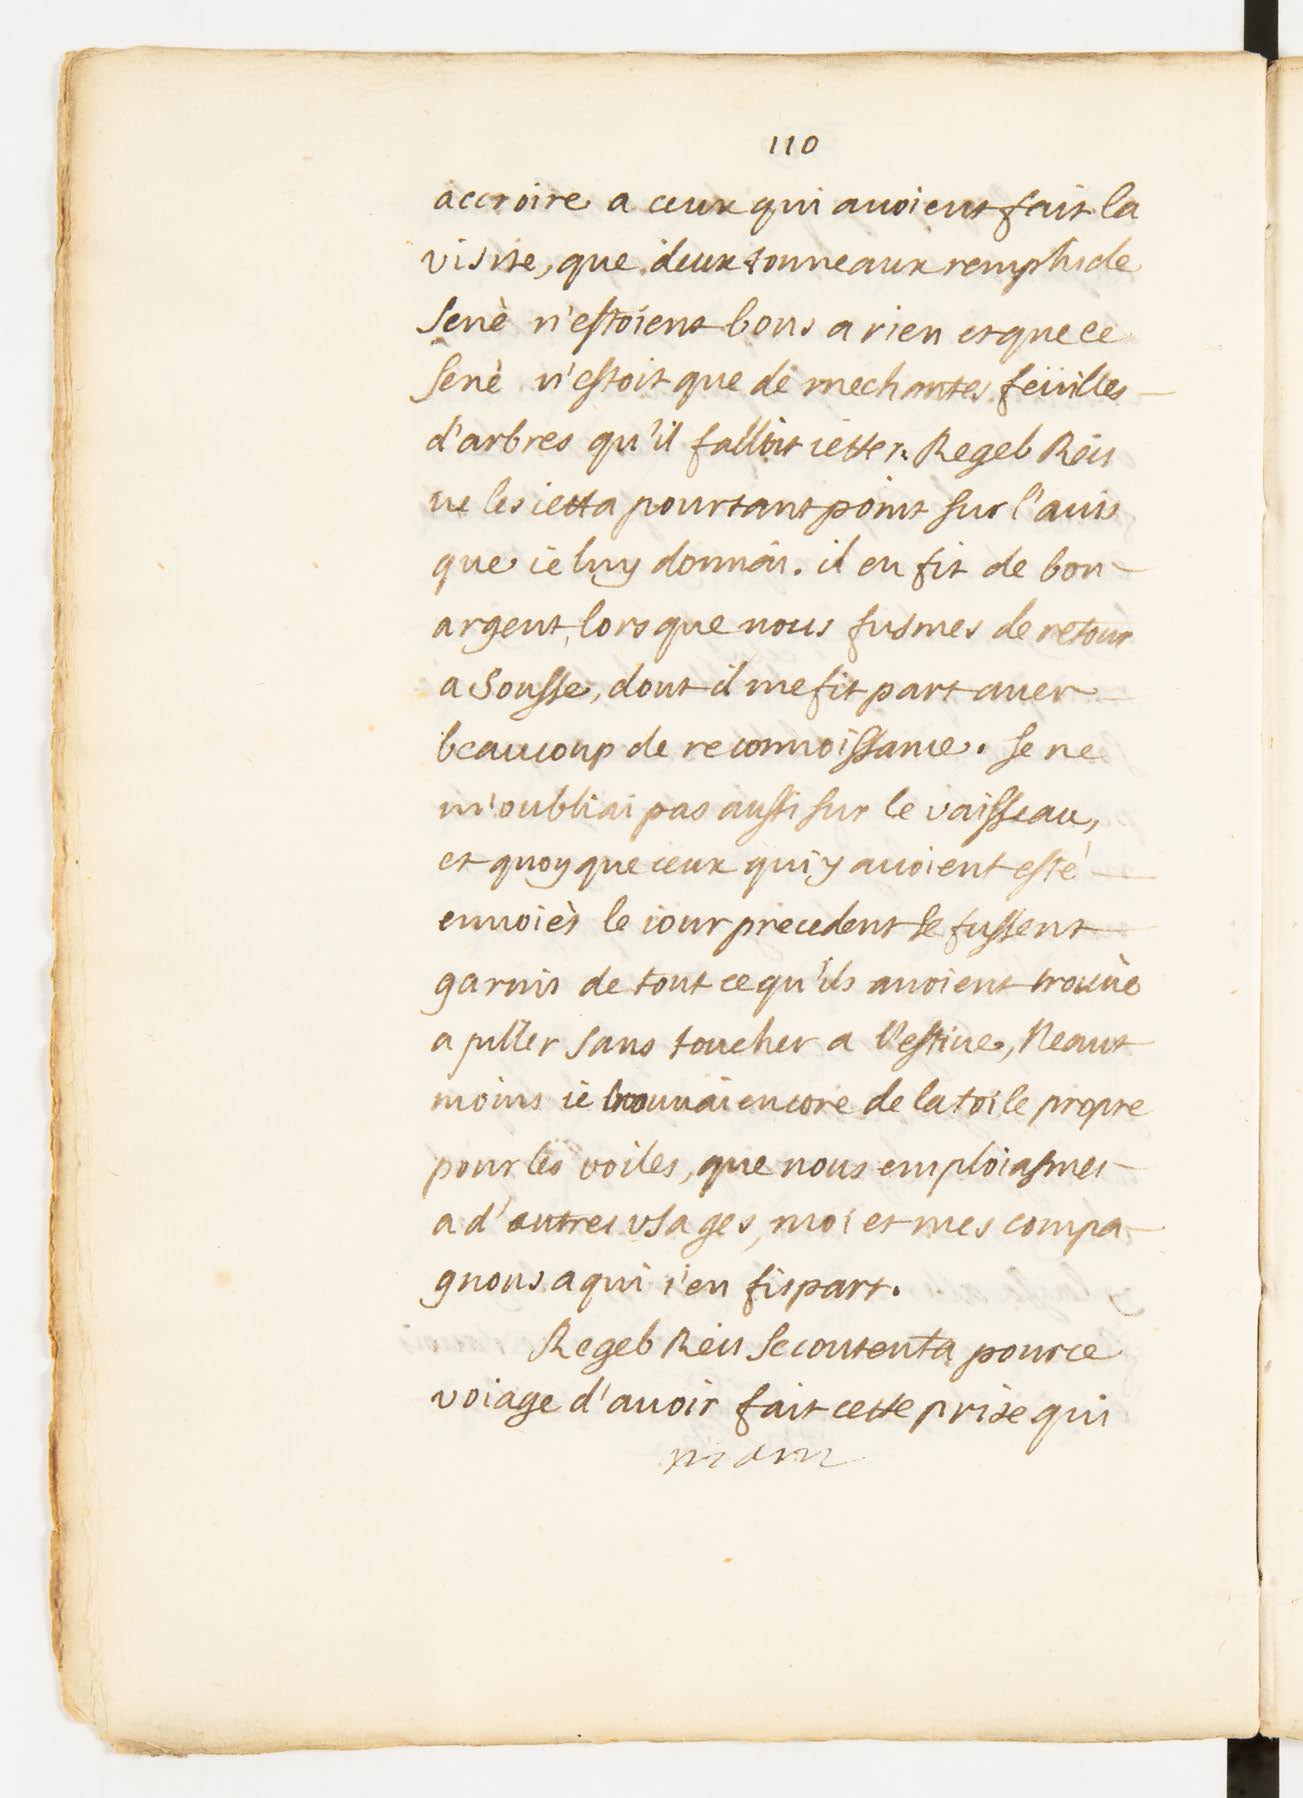 110
accroire a ceux qui auoient fait la
visite, que deux tonneaux remplis de
senè n'estoient bons a rien et que ce
senè n'estoit que de mechantes feüilles
d'arbres qu'il falloit ietter. Regeb Reis
ne les ietta pourtant point sur l'auis
que ie luy donnai. il en fit de bon
argent, lors que nous fusmes de retour
a Sousse, dont il me fit part auec
beaucoup de reconnoissance. Je ne
m'oubliai pas aussi sur le vaisseau,
et quoy que ceux qui y auoient esté
enuoiès le iour precedent se fussent
garnis de tout ce qu'ils auoient trouuè
a piller sans toucher a l'estiue, Neant
moins ie trouuai encore de la toile propre
pour les voiles, que nous emploiasmes
a d'autres vsages, moi et mes compa-
gnons a qui i'en fis part.
Regeb Reis se contenta pour ce
voiage d'auoir fait cette prise qui